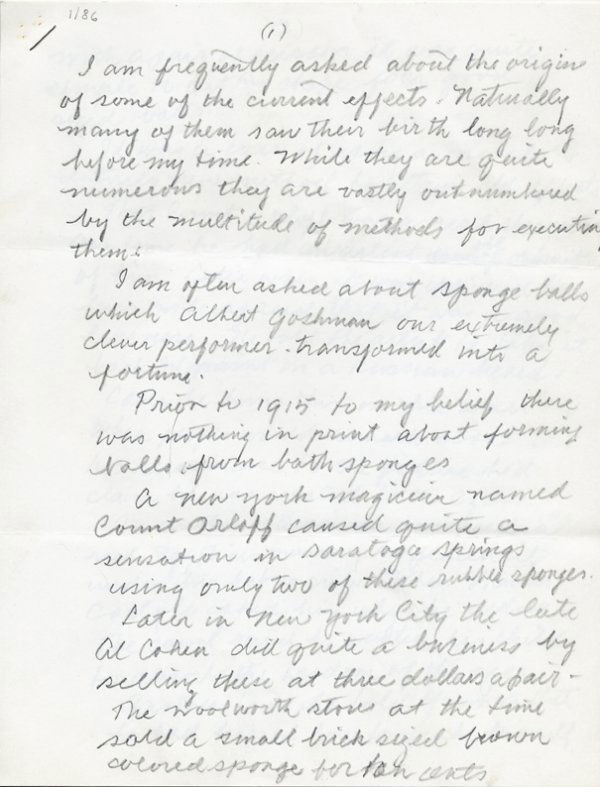 1/86
(1)
I am frequently asked about the origins
of some of the current effects. Naturally
many of them saw their birth long long
before my time. While they are quite
numerous they are vastly outnumbered
by the multitude of methods for executin
them.
I am often asked about sponge balls
which Albert Goshman our extremely
clever performer transformed into a
fortune.
Prior to 1915 to my belief there
was nothing in print about forming
balls from bath sponges
A new york magician named
Count Orloff caused quite a
sensation in Saratoga Springs
using only two of these rubber sponges.
Later in New York City the late
Al Cohen did quite a business by
selling these at three dollars a pair -
The Woolworth stores at the time
sold a small brick sized brown
colored sponge for ten cents